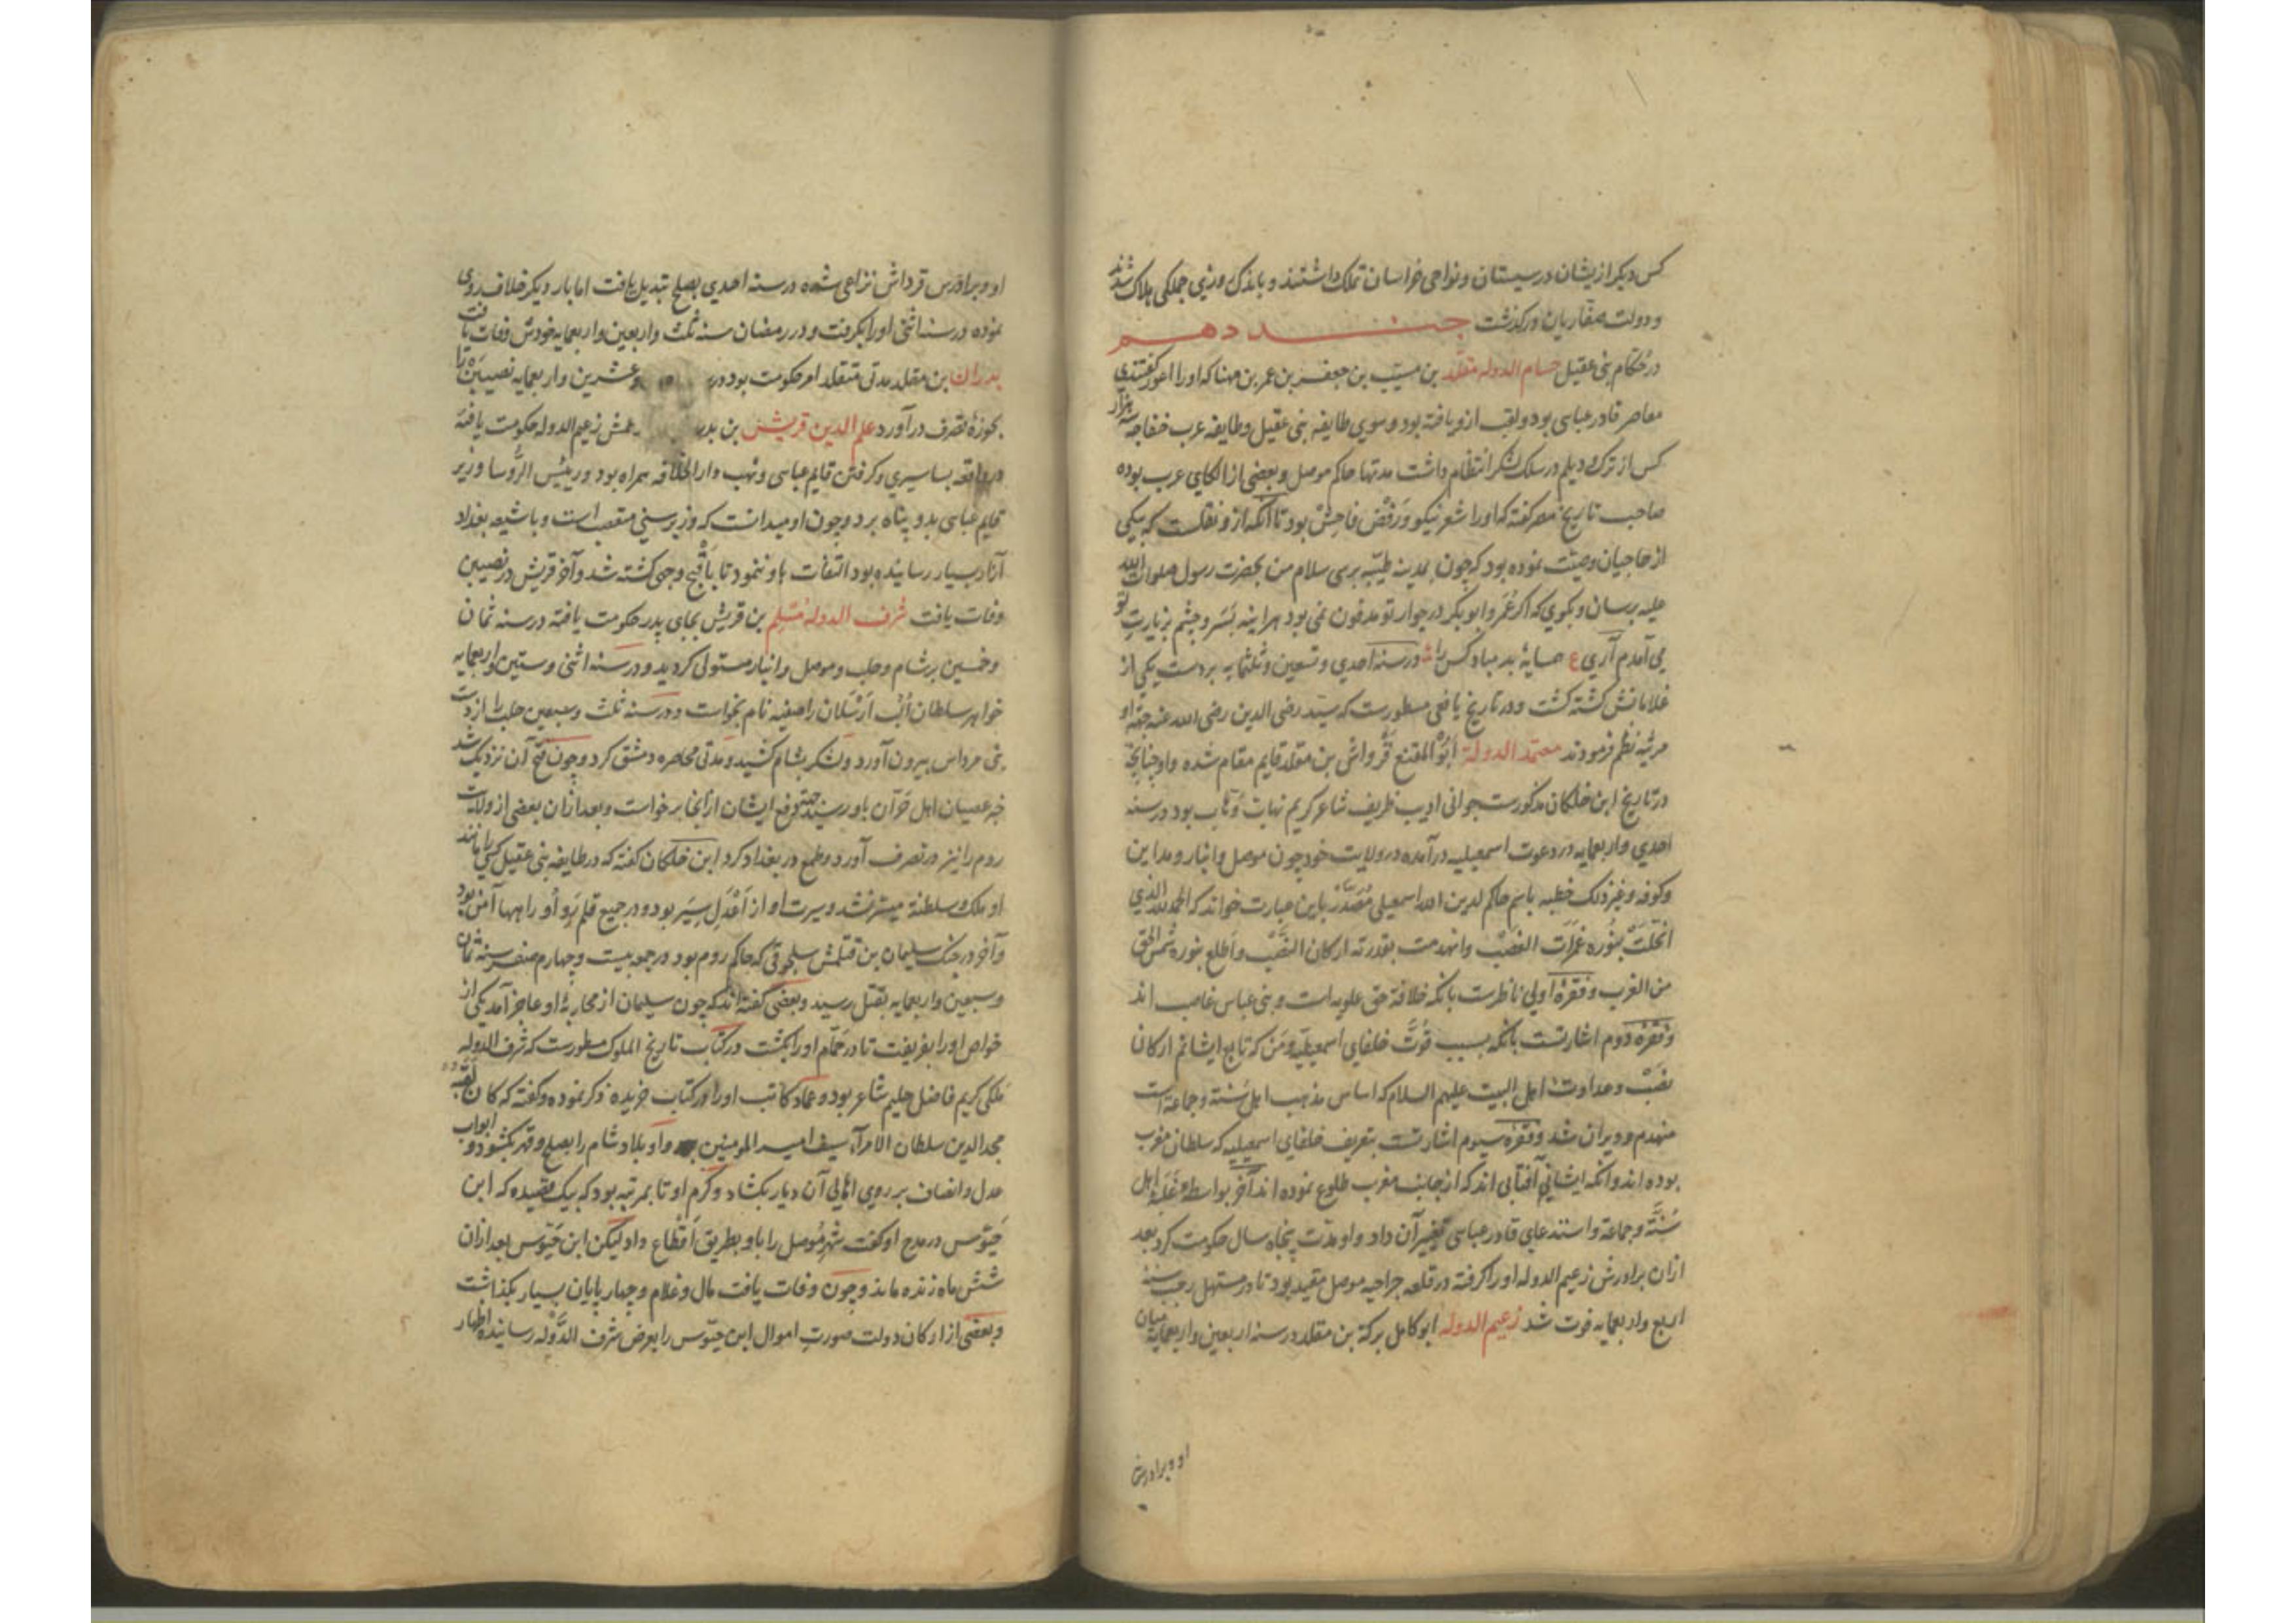 کس دیکر ازیشان در سیستان و نواحی خراسان تملک داشتند و باندک وزنی جملکی هلاک شدند
و دولت صفاریان درکذشت جند دهم
در حکام بنی عقیل حسام الدوله مقلد بن مسیب بن جعفر بن عمر بن مهنا که او را اعور کفتندی
معاصر قادر عباسی بود و لقب ازو یافته بود و سوی طایفه بنی عقیل و طایفه عرب خفاجه سه هزار
کس از ترک و دیلم در سلک لشکر انتظام داشت مدتها حاکم موصل و بعضی از الکای عرب بوده
صاحب تاریخ مصر کفته که او را شعر نیکو و رفض فاحش بود تا آنکه ازو نقلست که بیکی
از حاجیان وصیت نموده بود که جون بمدینه طیبه برسی سلام من بحضرت رسول صلوات الله
علیه برسان و بکوی که اکر عمر و ابوبکر در جوار تو مدفون نمی بود هراینه بسر و جشم بزیارت تو
می آمدم آری ع همسایهٔ بد مباد کس را در سنه احدی و تسعین و ثلثمایه بر دست یکی از
غلامانش کشته کشت و در تاریخ یافعی مسطورست که سید رضی الدین رضی الله عنه جهة او
مرثیه نظم فرمودند معتمد الدولة ابو المقنع قرواش بن مقلد قایم مقام شده و او جنانجه
در تاریخ ابن خلکان مذکورست جوانی ادیب ظریف شاعر کریم نهاب وهاب بود در سنه
احدی و اربعمایه در دعوت اسمعیلیه درآمده در ولایت خود جون موصل و انبار و مداین
و کوفه و غیر ذلک خطبه باسم حاکم لدین الله اسمعیلی مصدر باین عبارت خواند که الحمد لله الذی
انجلت بنوره غمرات الغضب وانهدمت بقدرته ارکان النصب واطلع بنوره شمس الحق
من الغرب و فقرهٔ اولی ناظرست بانکه خلافة حق علویه است و بنی عباس غاصب اند
و فقره دوم اشارتست بانکه بسبب قوت خلفای اسمعیلیه و من که تابع ایشانم ارکان
نصب و عداوت اهل البیت علیهم السلام که اساس مذهب اهل سنة و جماعة است
منهدم و ویران شد و فقره سیوم اشارتست بتعریف خلفای اسمعیلیه که سلطان مغرب
بوده اند و انکه ایشان آفتابی اند که از جانب مغرب طلوع نموده اند آخر بواسطه غلبه اهل
سنة و جماعة و استدعای قادر عباسی تغییر آن داد و او مدت پنجاه سال حکومت کرد بعد
ازان برادرش زعیم الدوله او را کرفته در قلعه جراحیه موصل مقید بود تا در مستهل رجب سنه
اربع و اربعمایه فوت شد زعیم الدوله ابو کامل برکة بن مقلد در سنه اربعین و اربعمایه میان
او و برادرش
او و برادرش قرداش نزاعی شده در سنه احدی بصلح تبدیل یافت اما بار دیکر خلاف روی
نموده در سنه اثنی او را بکرفت و در رمضان سنه ثلث و اربعین و اربعمایه خودش وفات یافت
بدران بن مقلد مدتی متقلد امر حکومت بود در و عشرین و اربعمایه نصیبین را
بحوزهٔ تصرف درآورد علم الدین قریش بن بدر عمش زعیم الدوله حکومت یافته
در واقعه بساسیری و کرفتن قایم عباسی و نهب دار الخلافه همراه بود و رییس الرؤسا وزیر
قایم عباسی بدو پناه برد و جون او میدانست که وزیر سنی متعصب است و با شیعه بغداد
آزار بسیار رسانیده بود التفات باو ننمود تا باقبح وجهی کشته شد و آخر قریش در نصیبین
وفات یافت شرف الدوله مسلم بن قریش بجای پدر حکومت یافته در سنه ثمان
و خمسین بر شام و حلب و موصل و انبار مستولی کردید و در سنه اثنی و ستین و اربعمایه
خواهر سلطان الب ارسلان را صفیه نام بخواست و در سنه ثلث و سبعین حلب را از دست
بنی مرداس بیرون آورد و لشکر بشام کشید و مدتی محاصره دمشق کرد و چون فتح آن نزدیک شد
خبر عصیان اهل حران باو رسید جهة دفع ایشان ازانجا برخواست و بعد ازان بعضی از ولایت
روم را نیز در تصرف آورد و طمع در بغداد کرد ابن خلکان کفته که در طایفه بنی عقیل کسی را مانند
او ملک و سلطنة میسر نشد و سیرت او از اعدل سیر بود و در جمیع قلمرو او راهها آمن بود
و آخر در جنک سلیمان بن قتلمش سلجوقی که حاکم روم بود در جمعه بیست و چهارم صفر سنه ثمان
و سبعین و اربعمایه بقتل رسید و بعضی کفته اند که چون سلیمان از محاربهٔ او عاجز آمد یکی از
خواص او را بفریفت تا در حمام او را بکشت در کتاب تاریخ الملوک مسطورست که شرف الدوله
ملکی کریم فاضل حلیم شاعر بود و عماد کاتب او را در کتاب خریده ذکر نموده و کفته که کان لقبه
مجد الدین سلطان الامرآء سیف امیر المومنین و او بلاد شام را بصلح و قهر بکشود و ابواب
عدل و انصاف بر روی اهالی آن دیار بکشاد و کرم او تا بمرتبه بود که بیک قصیده که ابن
حیوس در مدح او کفت شهر موصل را باو بطریق اقطاع داد لیکن ابن حیوس بعد ازان
شش ماه زنده ماند و چون وفات یافت مال و غلام و چهار پایان بسیار بکذاشت
و بعضی از ارکان دولت صورت اموال ابن حیوس را بعرض شرف الدوله رسانیده اظهار